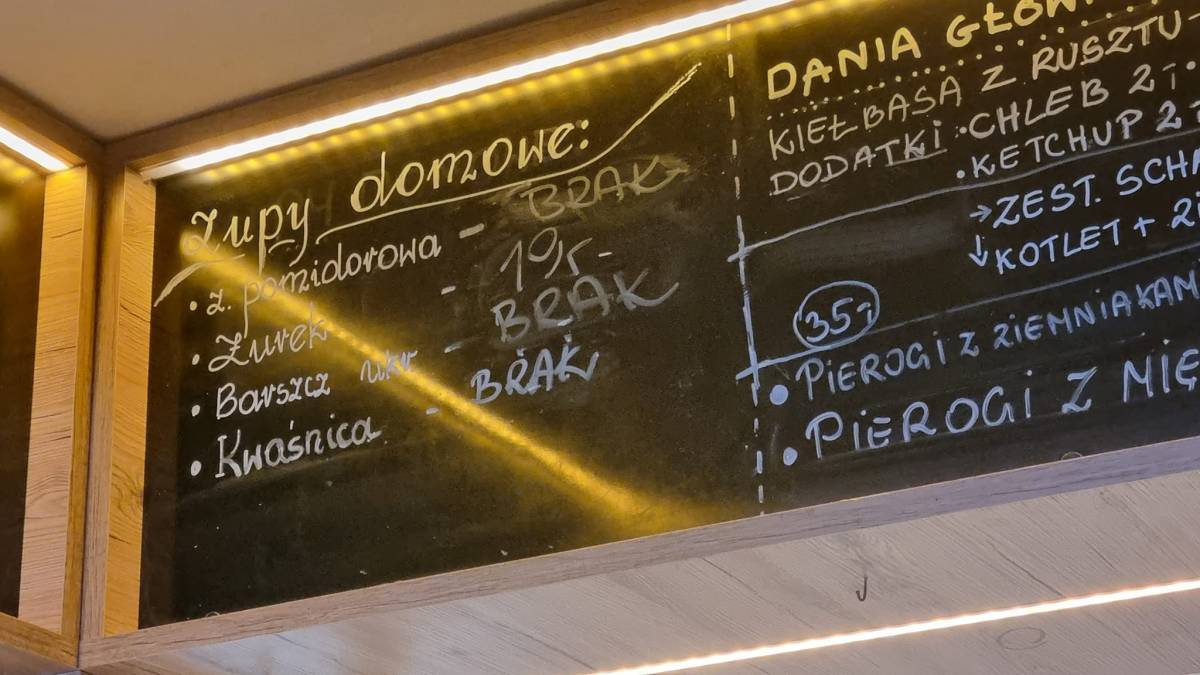 Zupy domowe:
• z. pomidorowa - BRAK
• Żurek - 10,-
• Barszcz ukr - BRAK
• Kwaśnica - BRAK
DANIA
KIEŁBASA Z RUSZTU -
DODATKI: • CHLEB 2
• KETCHUP 2
→ ZEST.
↓ KOTLET +
35
• PIEROGI Z ZIEMNIAKAM
• PIEROGI Z